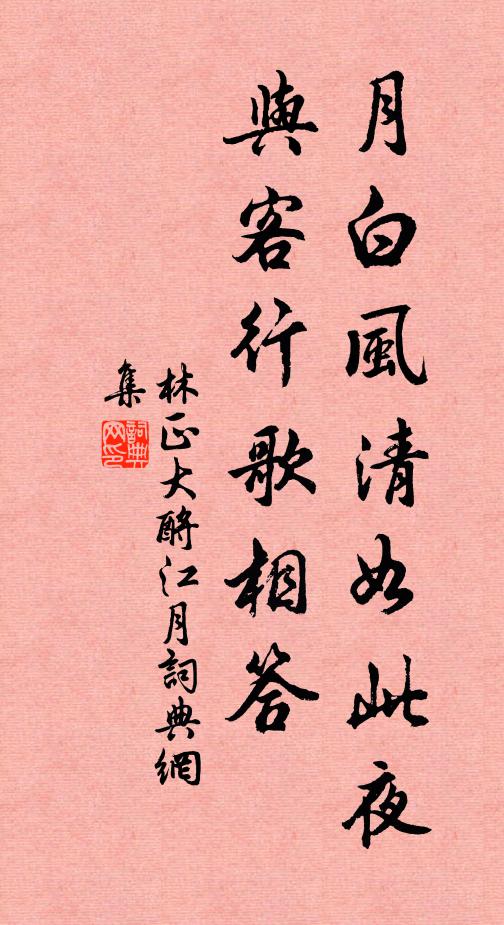 月白風清如此夜
與客行歌相答
林正大酹江月詞典網
集
詞典
网印